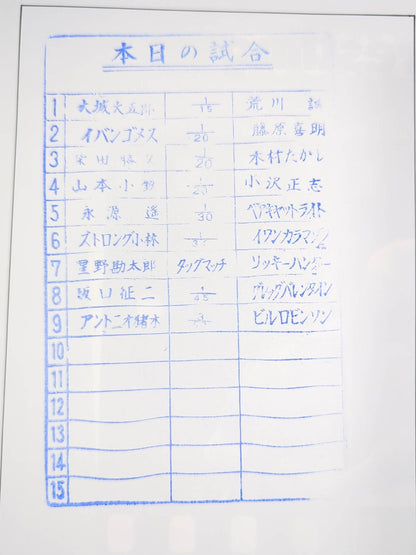 本日の試合
1 大城大五郎 1/15 荒川 誠
2 イバンゴメス 1/20 藤原喜明
3 栄田 1/20 木村たかし
4 山本小鉄 1/20 小沢正志
5 永源遙 1/30 ベアキャットライト
6 ストロング小林 イワンカラマゾフ
7 星野勘太郎 タッグマッチ リッキーハンター
8 坂口征二 1/45 グレッグバレンタイン
9 アントニオ猪木 ビルロビンソン
10
11
12
13
14
15